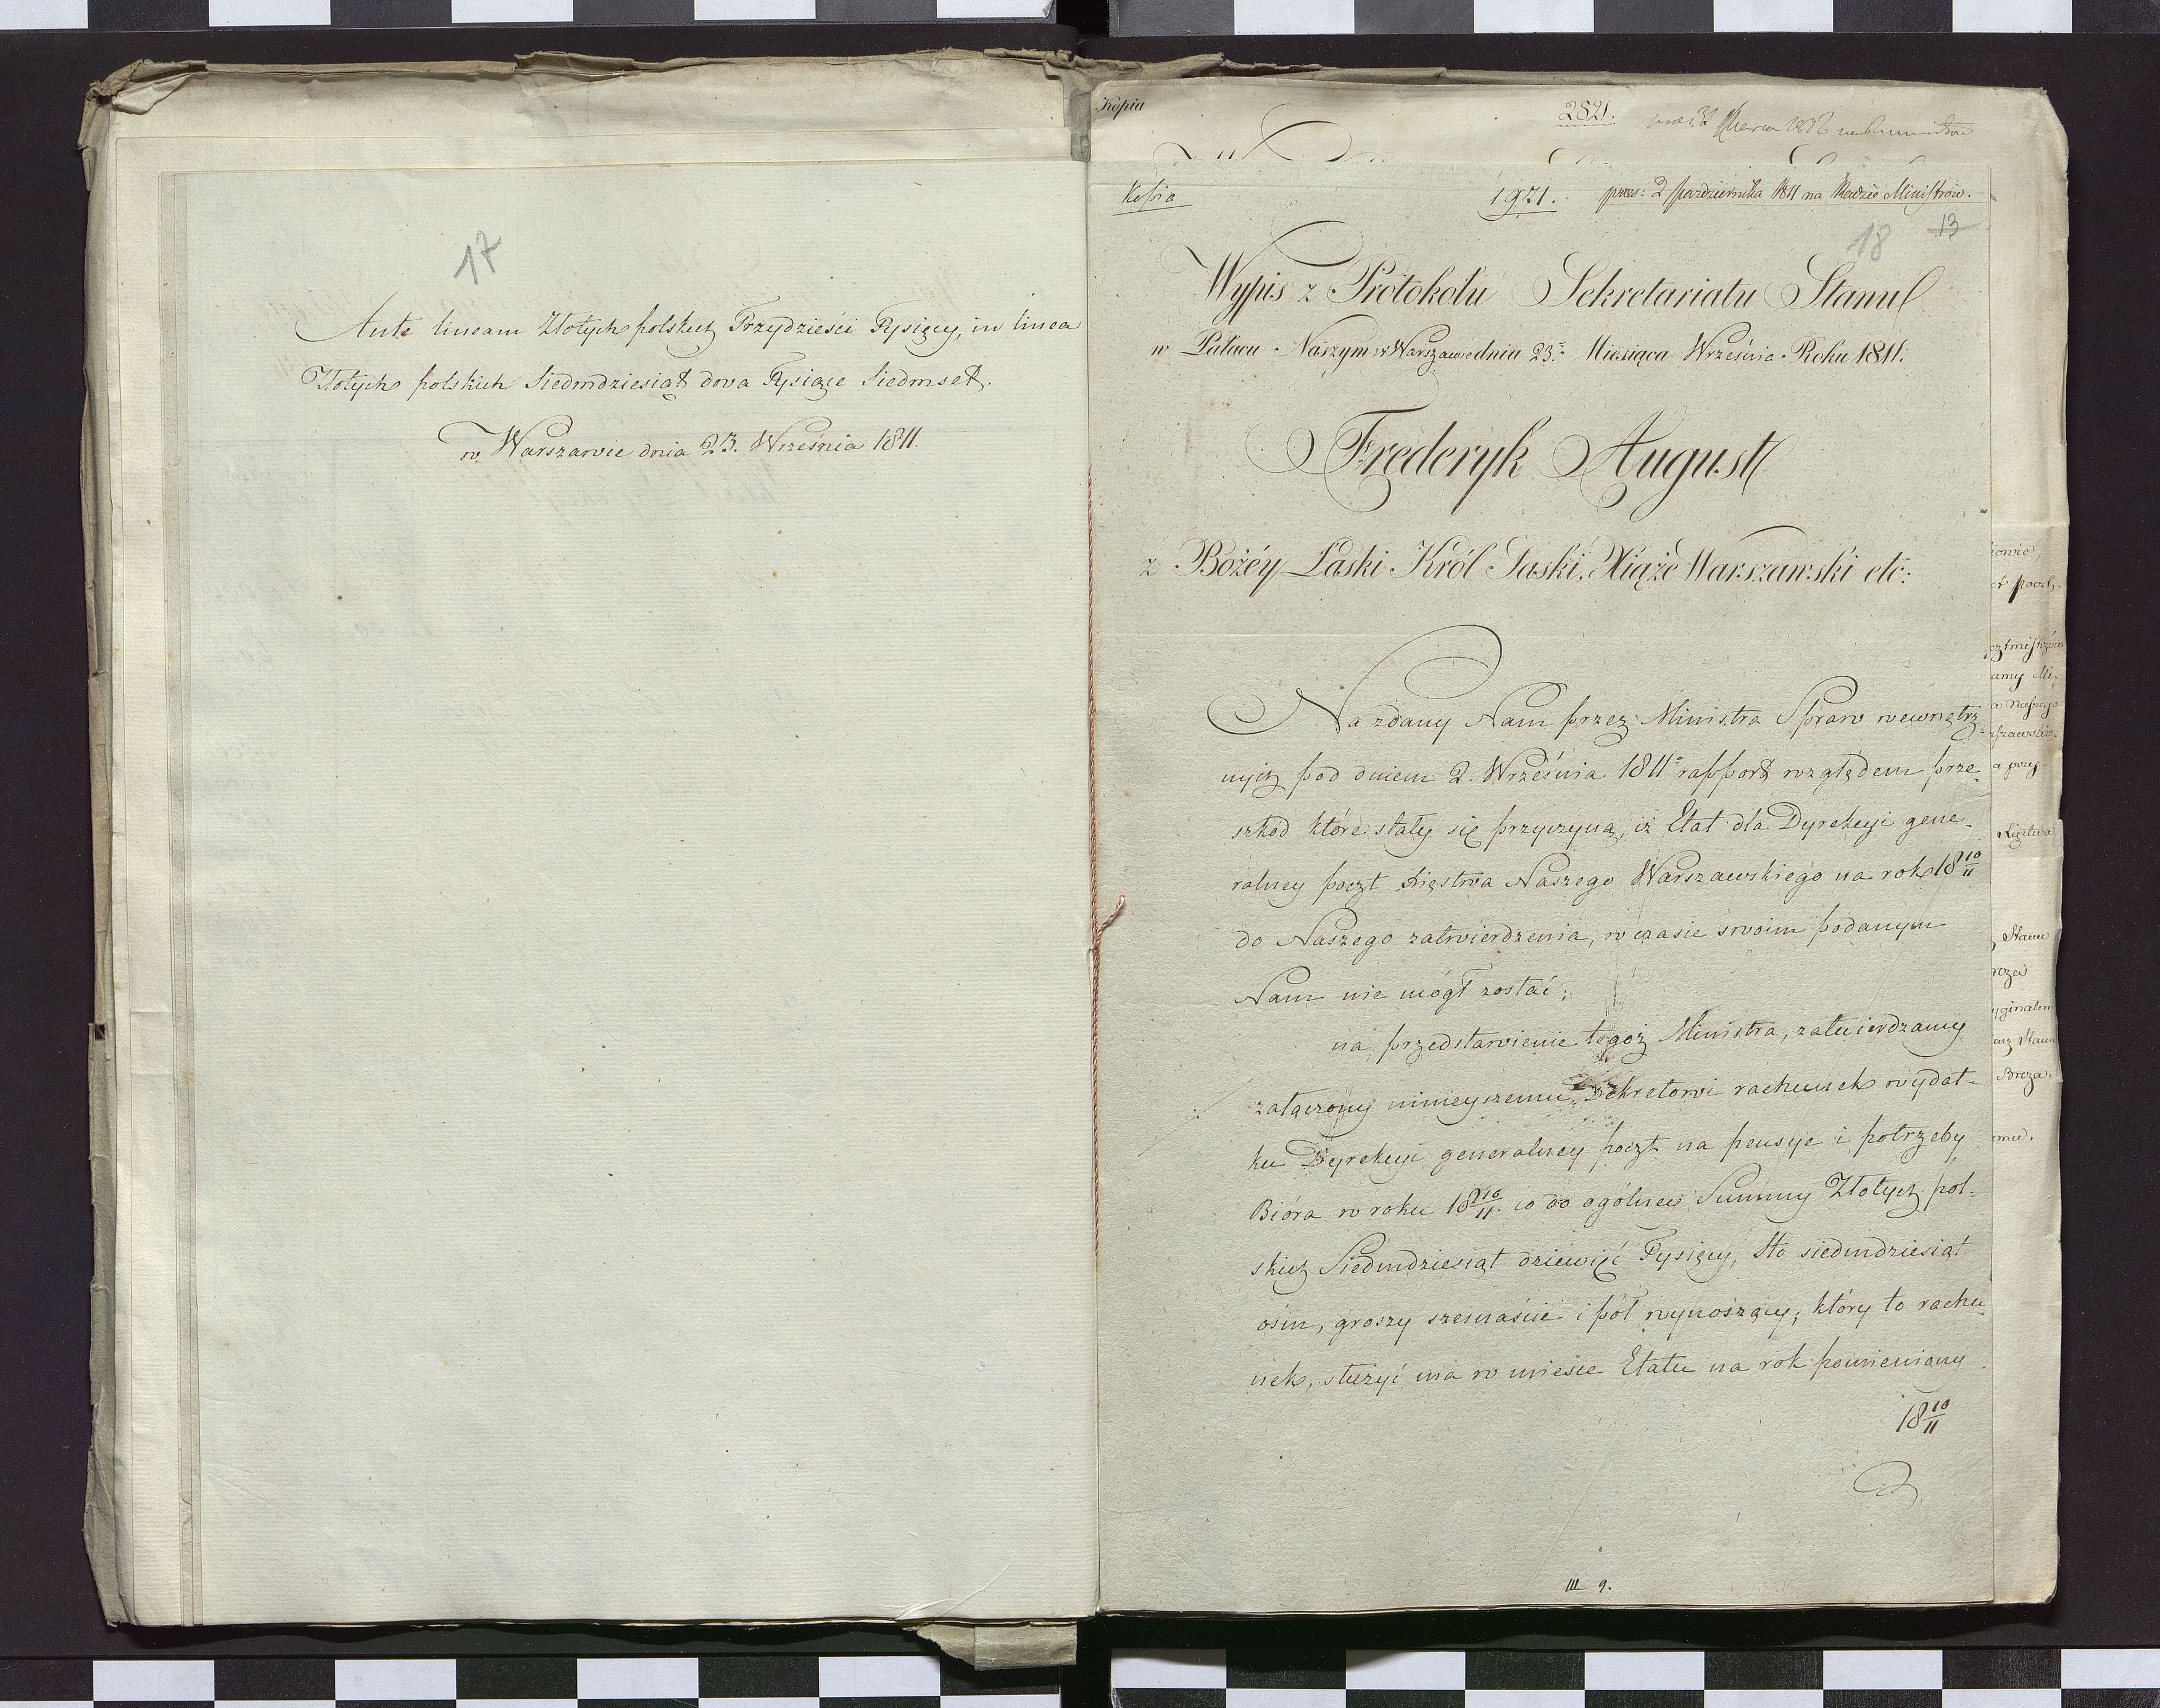 17
Ante lineam Złotych polskich Trzydzieści Tysięcy, in linea
Złotych polskich Siedmdziesiąt dwa Tysiące Siedmset.
w Warszawie dnia 23. Września 1811.
Kopia
282.
Kopia
1971.
prez: 2 Października 1811 na Radzie Ministrow.
18
13
Wypis z Protokołu Sekretariatu Stanu
w Pałacu Naszym w Warszawie dnia 23. Miesiąca Września Roku 1811.
Frederyk August
z Bożéy Łaski Król Saski, Xiąże Warszawski etc:
Na zdany Nam przez Ministra Spraw wewnętrz-
nych pod dniem 2. Września 1811 rapport względem prze-
szkód które stały się przyczyną, iż Etat dla Dyrekcyi gene-
ralney poczt Xięstwa Naszego Warszawskiego na rok 18 10/11
do Naszego zatwierdzenia, w czasie swoim podanym
Nam nie mógł zostać;
na przedstawienie tegoż Ministra, zatwierdzamy
załączony ninieyszemu Dekretowi rachunek wydat-
ku Dyrekcyi generalney poczt na pensye i potrzeby
Bióra w roku 18 10/11 co do ogólney Summy Złotych pol-
skich Siedmdziesiąt dziewięć Tysięcy, Sto siedmdziesiąt
ośm, groszy szesnaście i pół wynoszący; który to rachu-
nek, służyć ma w miesce Etatu na rok pomieniony
18 10/11
III 9.